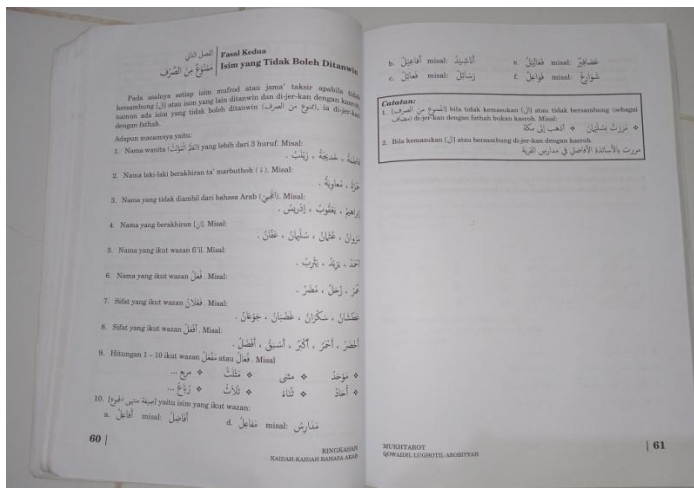 الفصل الثاني
مَمْنُوْعٌ مِنَ الصَّرْفِ
Fasal Kedua
Isim yang Tidak Boleh Ditanwin
Pada aslinya setiap isim mufrod atau jama' taksir apabila tidak
bersambung [ال] atau isim yang lain ditanwin dan di-jer-kan dengan kasroh,
namun ada isim yang tidak boleh ditanwin (ممنوع من الصرف), ia di-jer-kan
dengan fathah.
Adapun macamnya yaitu:
1. Nama wanita (العَلَمُ الْمُؤَنَّثُ) yang lebih dari 3 huruf. Misal:
فَاطِمَةُ ، خَدِيْجَةُ ، زَيْنَبُ .
2. Nama laki-laki berakhiran ta' marbuthoh (ة). Misal:
حَمْزَةُ ، مُعَاوِيَةُ .
3. Nama yang tidak diambil dari bahasa Arab. Misal:
إِبْرَاهِيْمُ ، يَعْقُوْبُ ، إِدْرِيْسُ .
4. Nama yang berakhiran [ان]. Misal:
مَرْوَانُ ، عُثْمَانُ ، سُلَيْمَانُ ، عَفَّانُ .
5. Nama yang ikut wazan fi'il. Misal:
أَحْمَدُ ، يَزِيْدُ ، يَثْرِبُ .
6. Nama yang ikut wazan فُعَلُ . Misal:
عُمَرُ ، زُحَلُ ، مُضَرُ .
7. Sifat yang ikut wazan فَعْلَانُ . Misal:
عَطْشَانُ ، سَكْرَانُ ، غَضْبَانُ ، جَوْعَانُ .
8. Sifat yang ikut wazan أَفْعَلُ . Misal:
أَخْضَرُ ، أَحْمَرُ ، أَكْبَرُ ، أَسْبَقُ ، أَفْضَلُ .
9. Hitungan 1 – 10 ikut wazan مَفْعَلُ atau فُعَالُ . Misal
❖ مَوْحَدُ ❖ مثنى ❖ مَثْلَثُ ❖ مربع ...
❖ أُحَادُ ❖ ثُنَاءُ ❖ ثُلَاثُ ❖ رُبَاعُ ...
10. [صيغة منتهى الجموع] yaitu isim yang ikut wazan:
a. أَفَاعِلُ misal: أَفَاضِلُ d. مَفَاعِلُ misal: مَدَارِسُ
60 |
RINGKASAN
KAIDAH-KAIDAH BAHASA ARAB
b. أَفَاعِيْلُ misal: أَنَاشِيْدُ e. فَعَالِيْلُ misal: عَصَافِيْرُ
c. فَعَائِلُ misal: رَسَائِلُ f. فَوَاعِلُ misal: شَوَارِعُ
Catatan:
1. (الممنوع من الصرف) bila tidak kemasukan [ال] atau tidak bersambung (sebagai
مضاف) di-jer-kan dengan fathah bukan kasroh. Misal:
❖ مَرَرْتُ بِسُلَيْمَانَ ❖ أذهب إلى مكة
2. Bila kemasukan [ال] atau bersambung di-jer-kan dengan kasroh.
مررت بالأساتذة الأفاضل في مدارس القرية
MUKHTAROT
QOWAIDIL LUGHOTIL AROBIYYAH
| 61